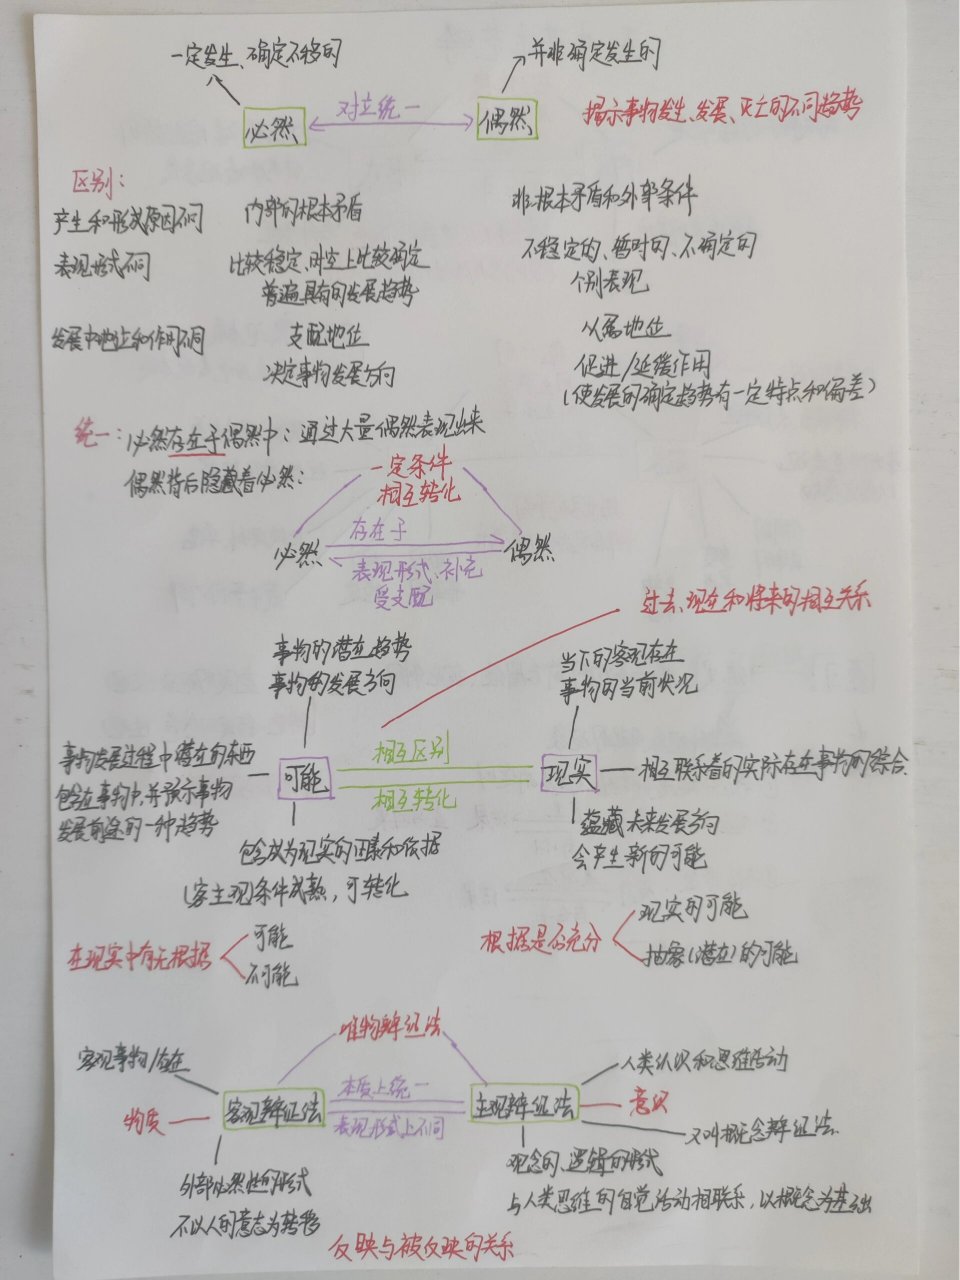 一定发生、确定不移的
并非确定发生的
必然
对立统一
偶然
揭示事物发生、发展、灭亡的不同趋势
区别：
产生和形成原因不同
内部的根本矛盾
非根本矛盾和外部条件
表现形式不同
比较稳定、时空上比较确定
普遍具有的发展趋势
不稳定的、暂时的、不确定的
个别表现
发展中地位和作用不同
支配地位
决定事物发展方向
从属地位
促进/延缓作用
（使发展的确定趋势有一定特点和偏差）
统一：必然存在于偶然中：通过大量偶然表现出来
偶然背后隐藏着必然：
一定条件
相互转化
必然
存在于
偶然
表现形式、补充
受支配
过去、现在和将来的相互关系
事物的潜在趋势
事物的发展方向
当下的客观存在
事物的当前状况
事物发展过程中潜在的东西
包含在事物中，并预示事物
发展前途的一种趋势
可能
相互区别
相互转化
现实
相互联系着的实际存在事物的综合
包含成为现实的因素和依据
（客主观）条件成熟，可转化
蕴藏未来发展方向
会产生新的可能
在现实中有无根据
可能
不可能
根据是否充分
现实的可能
抽象（潜在）的可能
唯物辩证法
客观事物/存在
物质
客观辩证法
本质上统一
表现形式上不同
主观辩证法
人类认识和思维活动
意识
又叫概念辩证法
外部必然性的形式
不以人的意志为转移
观念的、逻辑的形式
与人类思维的自觉活动相联系，以概念为基础
反映与被反映的关系